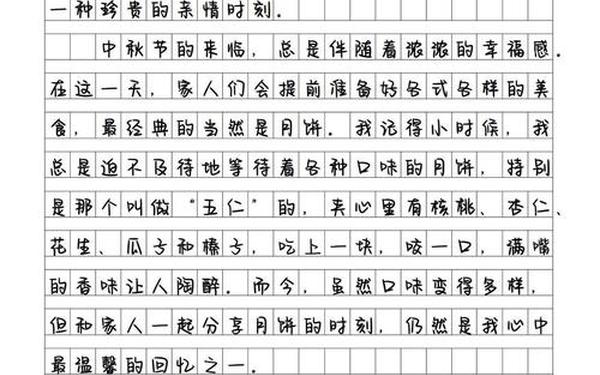 一种珍贵的亲情时刻.
中秋节的来临，总是伴随着浓浓的幸福感.
在这一天，家人们会提前准备好各式各样的美
食，最经典的当然是月饼.我记得小时候，我
总是迫不及待地等待着各种口味的月饼，特别
是那个叫做“五仁”的，夹心里有核桃、杏仁、
花生、瓜子和榛子，吃上一块，咬一口，满嘴
的香味让人陶醉.而今，虽然口味变得多样，
但和家人一起分享月饼的时刻，仍然是我心中
最温馨的回忆之一.